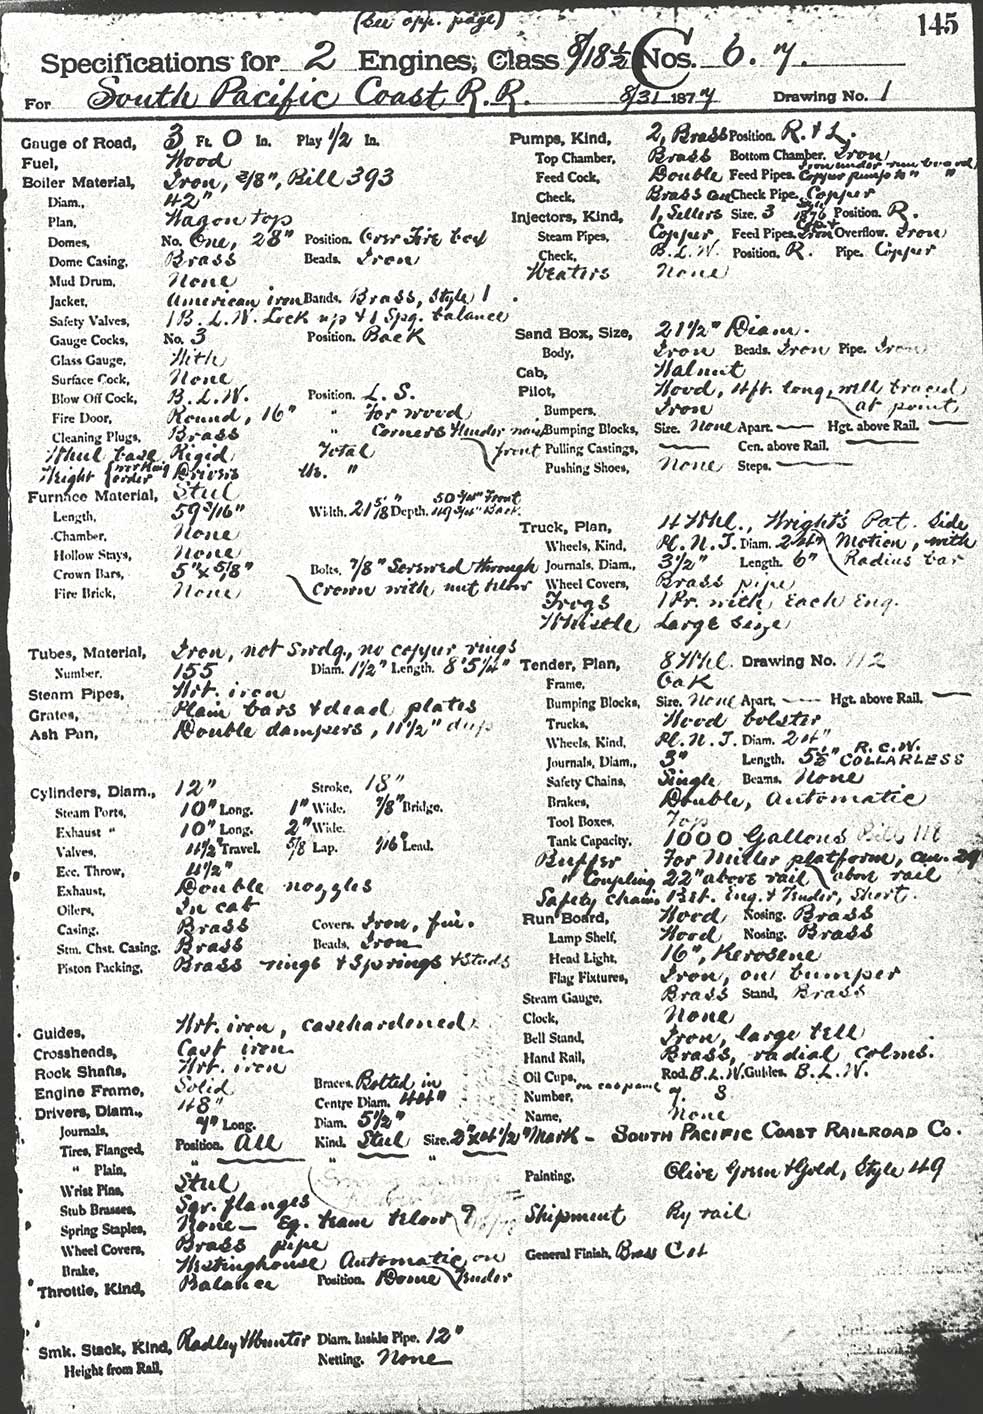 (See opp. page)
145
Specifications for 2 Engines, Class 8/18 1/2 C Nos. 6. 7.
For South Pacific Coast R. R. 8/31 1877 Drawing No. 1
Gauge of Road, 3 Ft. 0 In. Play 1/2 In.
Fuel, Wood
Boiler Material, Iron, 3/8", Bill 393
Diam., 42"
Plan, Wagon top
Domes, No. One, 28" Position. Over Fire box
Dome Casing, Brass Beads. Iron
Mud Drum, None
Jacket, American iron Bands. Brass, Style 1
Safety Valves, 1 B. L. W. Lock up & 1 Spg. balance
Gauge Cocks, No. 3 Position. Back
Glass Gauge, With
Surface Cock, None
Blow Off Cock, B. L. W. Position. L. S.
Fire Door, Round, 16" " for wood
Cleaning Plugs, Brass " Corners & under
Wheel base Rigid Total front
Weight working order Drivers "
Furnace Material, Steel
Length, 59 3/16" Width. 21 5/8" Depth. 50 3/4" Front 49 3/4" Back.
Chamber, None
Hollow Stays, None
Crown Bars, 5" x 5/8" Bolts. 7/8" Screwed through
Fire Brick, None Crown with nut below
Tubes, Material, Iron, not Swdg., no copper rings
Number. 155 Diam. 1 1/2" Length. 8' 5 1/4"
Steam Pipes, Wrt. iron
Grates, Plain bars & dead plates
Ash Pan, Double dampers, 11 1/2" deep
Cylinders, Diam., 12" Stroke, 18"
Steam Ports, 10" Long. 1" Wide. 7/8" Bridge.
Exhaust " 10" Long. 2" Wide.
Valves, 4 1/2" Travel. 5/8 Lap. 1/16" Lead.
Ecc. Throw, 4 1/2"
Exhaust, Double nozzles
Oilers, In cab
Casing, Brass Covers. Iron, fin.
Stm. Chst. Casing. Brass Beads, Iron
Piston Packing, Brass rings & Springs & Studs
Guides, Wrt. iron, casehardened
Crossheads, Cast iron
Rock Shafts, Wrt. iron
Engine Frame, Solid Braces. Bolted in
Drivers, Diam., 48" Centre Diam. 44"
Journals, 7" Long. Diam. 5 1/2"
Tires, Flanged, Position. All Kind. Steel Size. 2" x 4 1/2"
" Plain, " " "
Wrist Pins, Steel
Stub Brasses, Sqr. flanges
Spring Staples, None - Eq. beam below
Wheel Covers, Brass pipe
Brake, Westinghouse Automatic, on Tender
Throttle, Kind, Balance Position. Dome
Smk. Stack, Kind, Radley & Hunter Diam. Inside Pipe. 12"
Height from Rail, Netting. None
Pumps, Kind, 2, Brass Position. R. & L.
Top Chamber, Brass Bottom Chamber. Iron
Feed Cock, Double Feed Pipes. Iron under run board, Copper pump to " "
Check, Brass Check Pipe. Copper
Injectors, Kind, 1, Sellers Size. 3 Style 1876 Position. R.
Steam Pipes, Copper Feed Pipes. Iron Overflow. Iron
Check, B. L. W. Position. R. Pipe. Copper
Heaters None
Sand Box, Size, 21 1/2" Diam.
Body, Iron Beads. Iron Pipe. Iron
Cab, Walnut
Pilot, Wood, 4 ft. long, well braced at point
Bumpers, Iron
Bumping Blocks, Size. None Apart. — Hgt. above Rail. —
Pulling Castings, — Cen. above Rail. —
Pushing Shoes, None Steps. —
Truck, Plan, 4 Whl., Wright's Pat. Side Motion, with Radius bar
Wheels, Kind, Pl. N. J. Diam. 24"
Journals, Diam., 3 1/2" Length. 6"
Wheel Covers, Brass pipe
Frogs 1 Pr. with Each Eng.
Whistle Large size
Tender, Plan, 8 Whl. Drawing No. 112
Frame, Oak
Bumping Blocks, Size. None Apart. — Hgt. above Rail. —
Trucks, Wood bolster
Wheels, Kind, Pl. N. J. Diam. 24"
Journals, Diam., 3" Length. 5 1/2" R. C. W. COLLARLESS
Safety Chains, Single Beams. None
Brakes, Double, Automatic
Tool Boxes, Top
Tank Capacity, 1000 Gallons
Buffer For Miller platform, cen. 29 above rail
" Coupling 22" above rail
Safety Chains Bet. Eng. & Tender, Short.
Run Board, Wood Nosing. Brass
Lamp Shelf, Wood Nosing. Brass
Head Light, 16", Kerosene
Flag Fixtures, Iron, on bumper
Steam Gauge, Brass Stand, Brass
Clock, None
Bell Stand, Iron, large bell
Hand Rail, Brass, radial colms.
Oil Cups, Rod. B. L. W. Guides. B. L. W.
Number, on cab panel 7. 8
Name, None
Mark - SOUTH PACIFIC COAST RAILROAD CO.
Painting, Olive Green & Gold, Style 49
Shipment By rail
General Finish, Brass